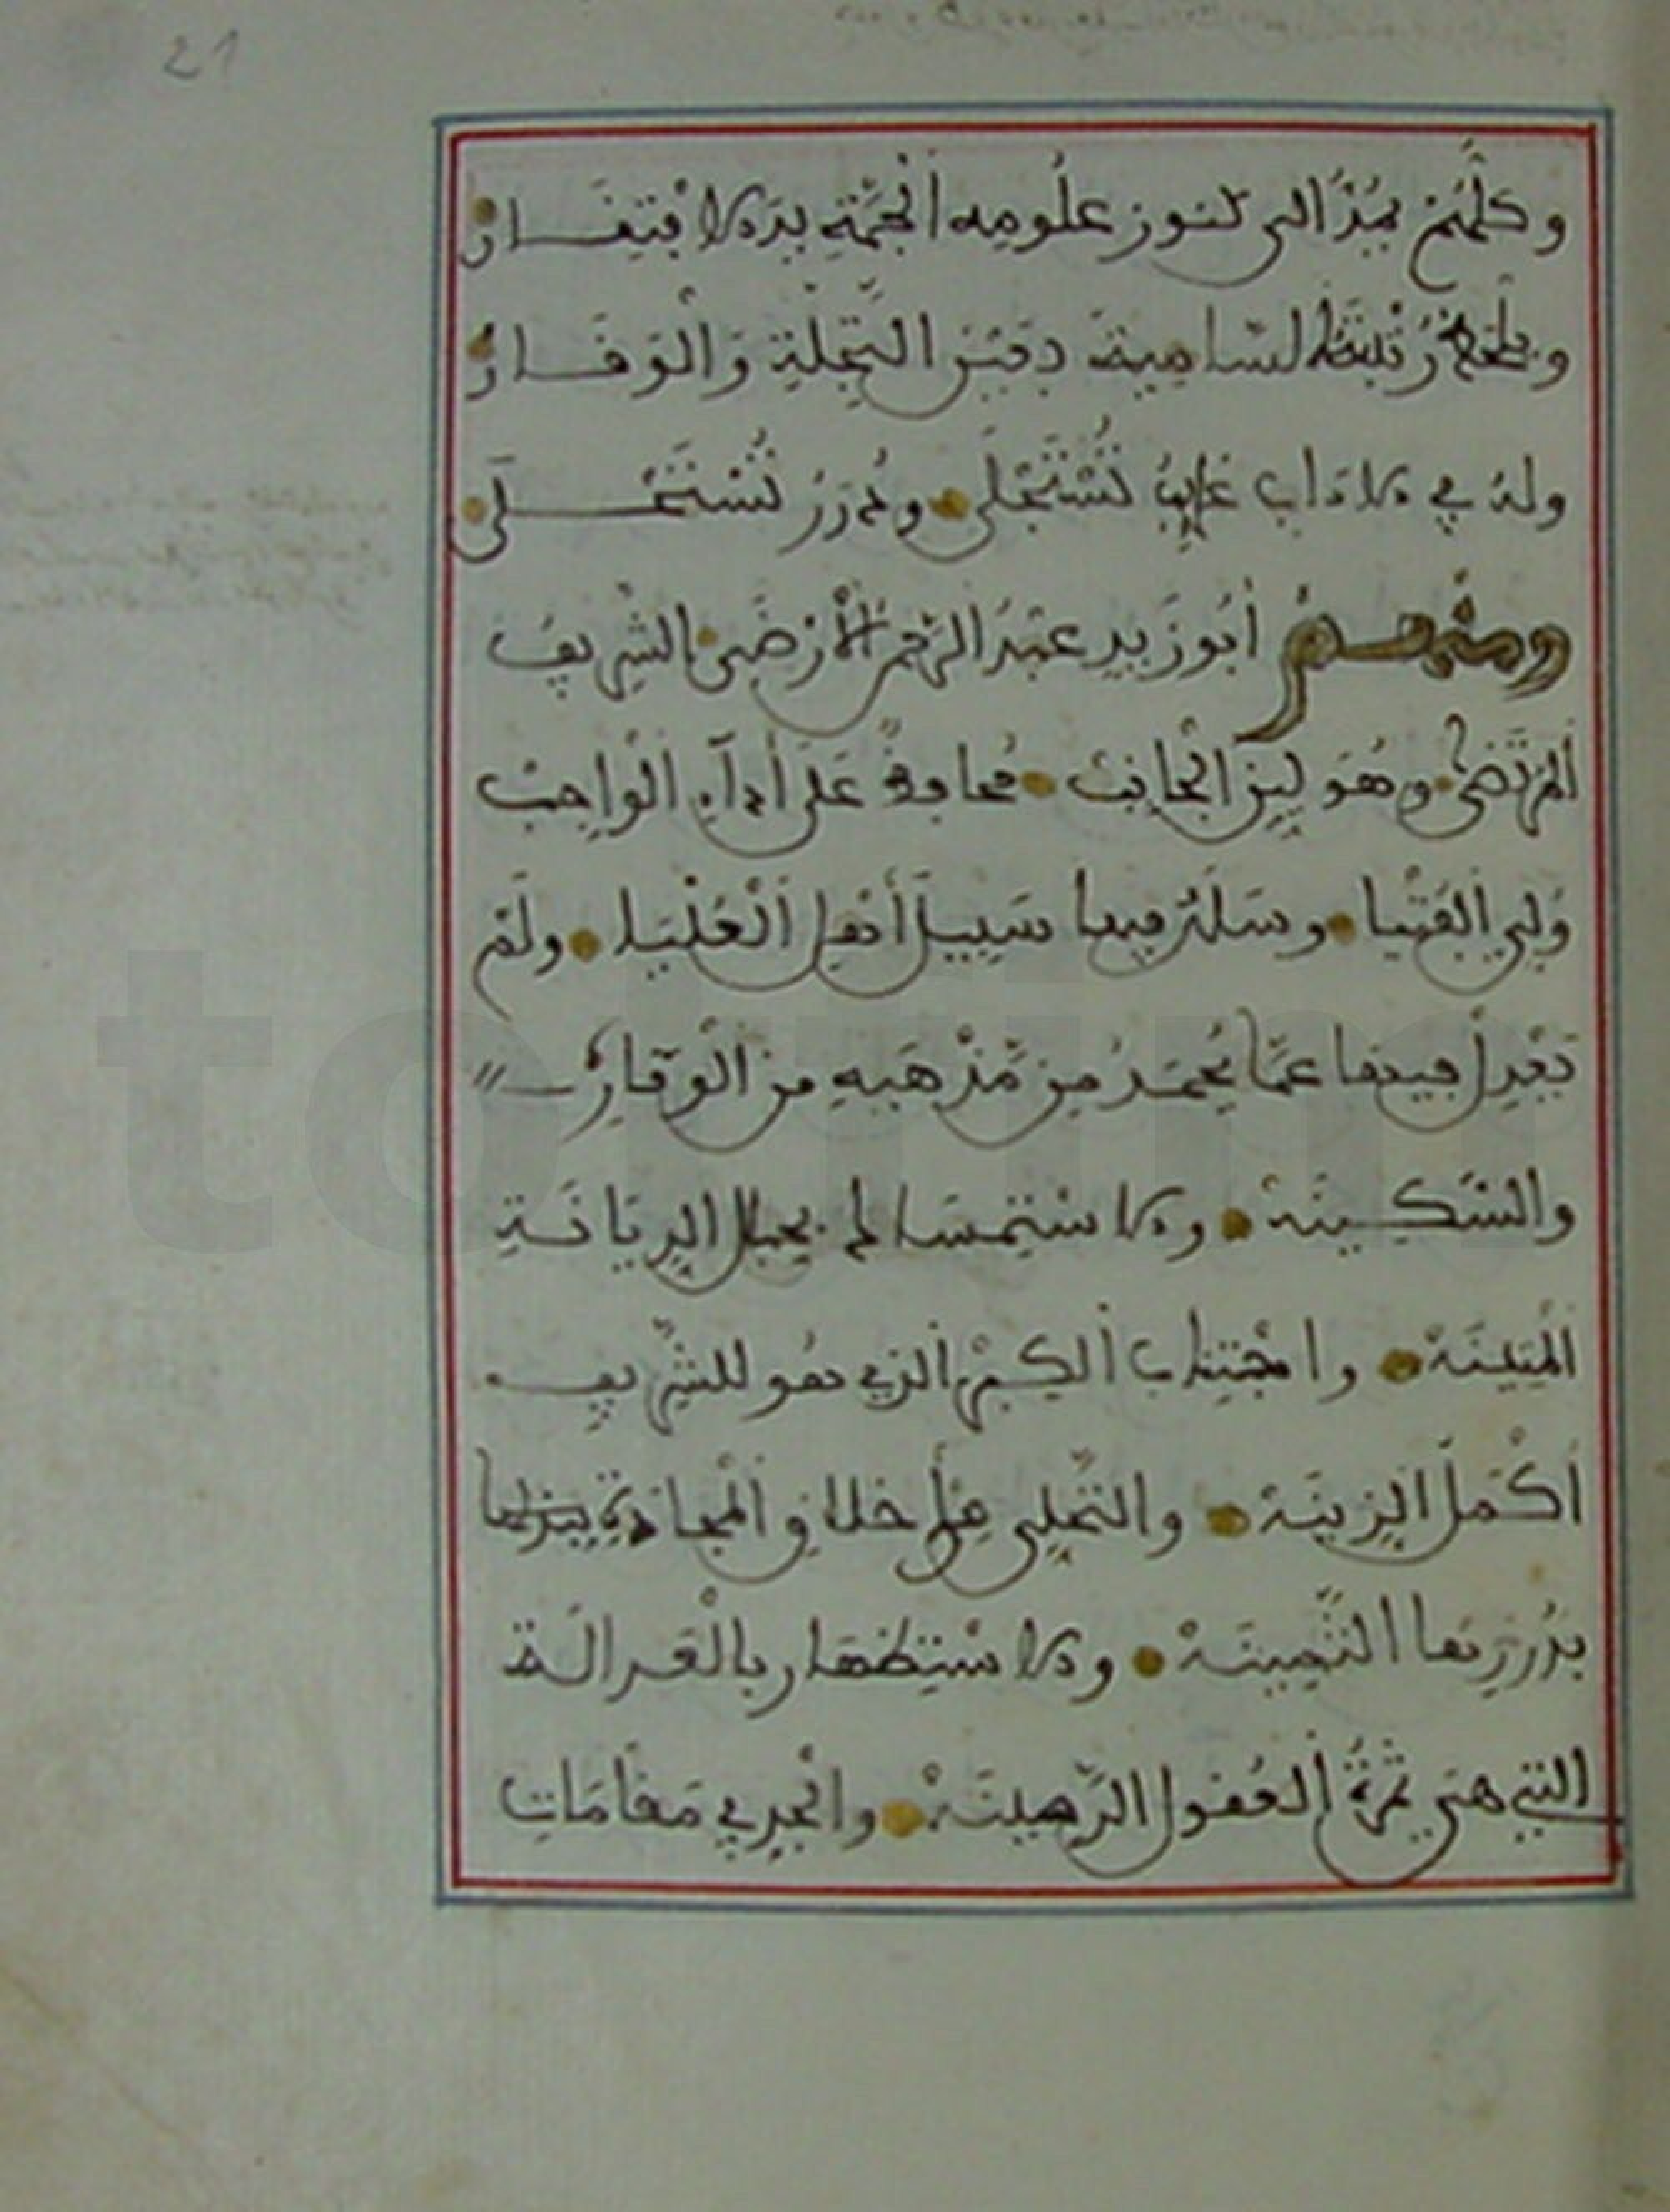 21
وكلهم يمد الى كنوز علومه الجمة يد الافتقار
ويلحظ رتبته السامية بعين التجلة والوقار
وله في الاداب غرايب تستجلى ودرر تستملى
ومنهم أبو زيد عبد الرحمن الأرضى الشريف
المرتضى وهو لين الجانب محافظ على أداء الواجب
ولي الفتيا وسلك فيها سبيل أهل العليا ولم
يعدل فيها عما يحمد من مذهبه من الوقار
والسكينة والاستمساك بحبل الديانة
المتينة واجتناب الكبر الذي هو للشريف
أكمل الزينة والتحلي من أخلاق المجادة
بدررها الثمينة والاستظهار بالعدالة
التي هي ثمرة العقول الرصينة والجد في مقامات
tolrim